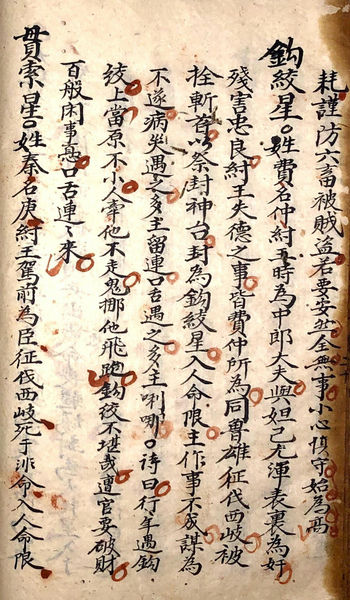 耗謹防六畜被賊盗若要安然全無事小心慎守始為高
鈎絞星。姓費名仲紂王時為中郎大夫與妲己尤渾表裏為奸
殘害忠良紂王失德之事皆費仲所為同魯雄征伐西岐被
拴斬首以祭封神台封為鈎絞星入人命限主作事不成謀為
不遂病災遇之多主留連口舌遇之多主唎唎。詩曰行年遇鈎
絞上當原不小人牽他不走鬼挪他飛跑鈎絞不堪哉遭官要破財
百般闲事惹口舌連〻來
貫索星。姓秦名庚紂王駕前為臣征伐西岐死于非命入人命限